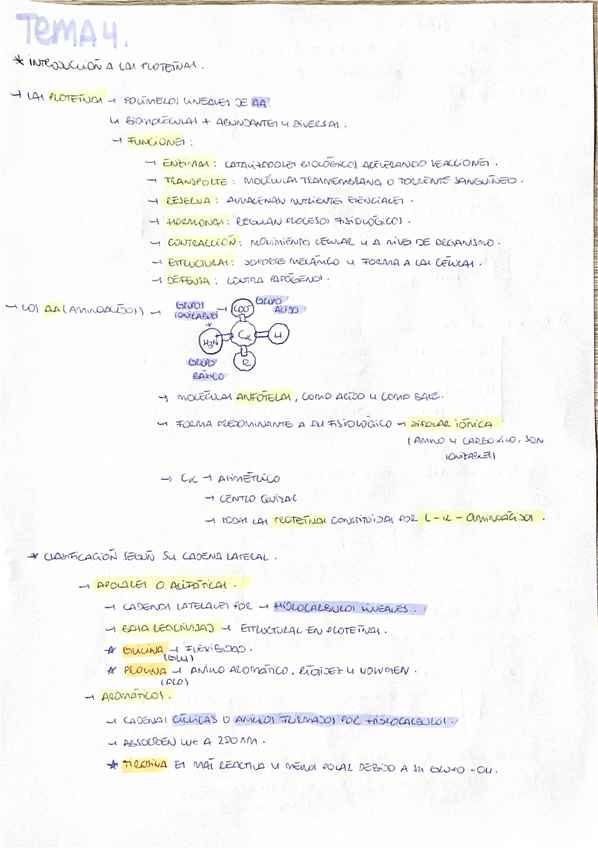 TEMA 4.
* INTRODUCCIÓN A LAS PROTEÍNAS.
→ LAS PROTEÍNAS → POLÍMEROS LINEALES DE AA
↳ BIOMOLÉCULAS + ABUNDANTES Y DIVERSAS.
→ FUNCIONES:
→ ENZIMAS: CATALIZADORES BIOLÓGICOS ACELERANDO REACCIONES.
→ TRANSPORTE: MOLÉCULAS TRANSMEMBRANA O TORRENTE SANGUÍNEO.
→ RESERVA: ALMACENAN NUTRIENTES ESENCIALES.
→ HORMONAS: REGULAN PROCESOS FISIOLÓGICOS.
→ CONTRACCIÓN: MOVIMIENTO CELULAR Y A NIVEL DE ORGANISMO.
→ ESTRUCTURAS: SOPORTE MECÁNICO Y FORMA A LAS CÉLULAS.
→ DEFENSA: CONTRA PATÓGENOS.
→ LOS AA (AMINOÁCIDOS) →
GRUPOS IONIZABLES → COO⁻ GRUPO ÁCIDO
H₃N Cα H
R
GRUPO BÁSICO
→ MOLÉCULAS ANFÓTERAS, COMO ÁCIDO Y COMO BASE.
→ FORMA PREDOMINANTE A PH FISIOLÓGICO → DIPOLAR IÓNICA
(AMINO Y CARBOXILO, SON
IONIZABLES)
→ Cα → ASIMÉTRICO
→ CENTRO QUIRAL
→ TODAS LAS PROTEÍNAS CONSTITUIDAS POR L-α-AMINOÁCIDOS.
* CLASIFICACIÓN SEGÚN SU CADENA LATERAL.
→ APOLARES O ALIFÁTICAS.
→ CADENAS LATERALES POR → HIDROCARBUROS LINEALES.
→ BAJA REACTIVIDAD → ESTRUCTURAL EN PROTEÍNAS.
* GLICINA → FLEXIBIDAD.
(GLY)
* PROLINA → ANILLO AROMÁTICO, RIGIDEZ Y VOLUMEN.
(PRO)
→ AROMÁTICOS.
→ CADENAS CÍCLICAS O ANILLOS FORMADOS POR HIDROCARBUROS.
→ ABSORBEN LUZ A 280 NM.
* TIROSINA ES MÁS REACTIVA Y MENOS POLAR DEBIDO A SU GRUPO -OH.